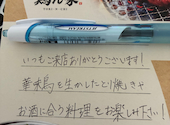 鶏ん家
いつもご来店ありがとうございます!
華味鳥を生かしたとり焼きや
お酒に合う料理をお楽しみ下さい!